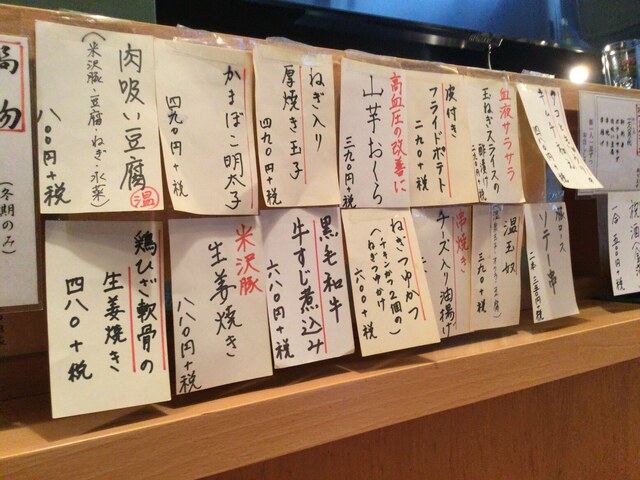 鍋物
(冬期のみ)
肉吸い豆腐
温
(米沢豚・豆腐・ねぎ・水菜)
八〇〇円+税
かまぼこ明太子
四九〇円+税
ねぎ入り
厚焼き玉子
四九〇円+税
高血圧の改善に
山芋おくら
三九〇円+税
皮付き
フライドポテト
二九〇円+税
血液サラサラ
玉ねぎスライスの
酢漬け
鶏ひざ軟骨の
生姜焼き
四八〇+税
米沢豚
生姜焼き
八八〇円+税
黒毛和牛
牛すじ煮込み
六八〇円+税
ねぎつゆかつ
(チキンかつ2個の)
(ねぎつゆかけ)
六八〇+税
串焼き
チーズ入り油揚げ
温玉奴
三九〇+税
ソテー串